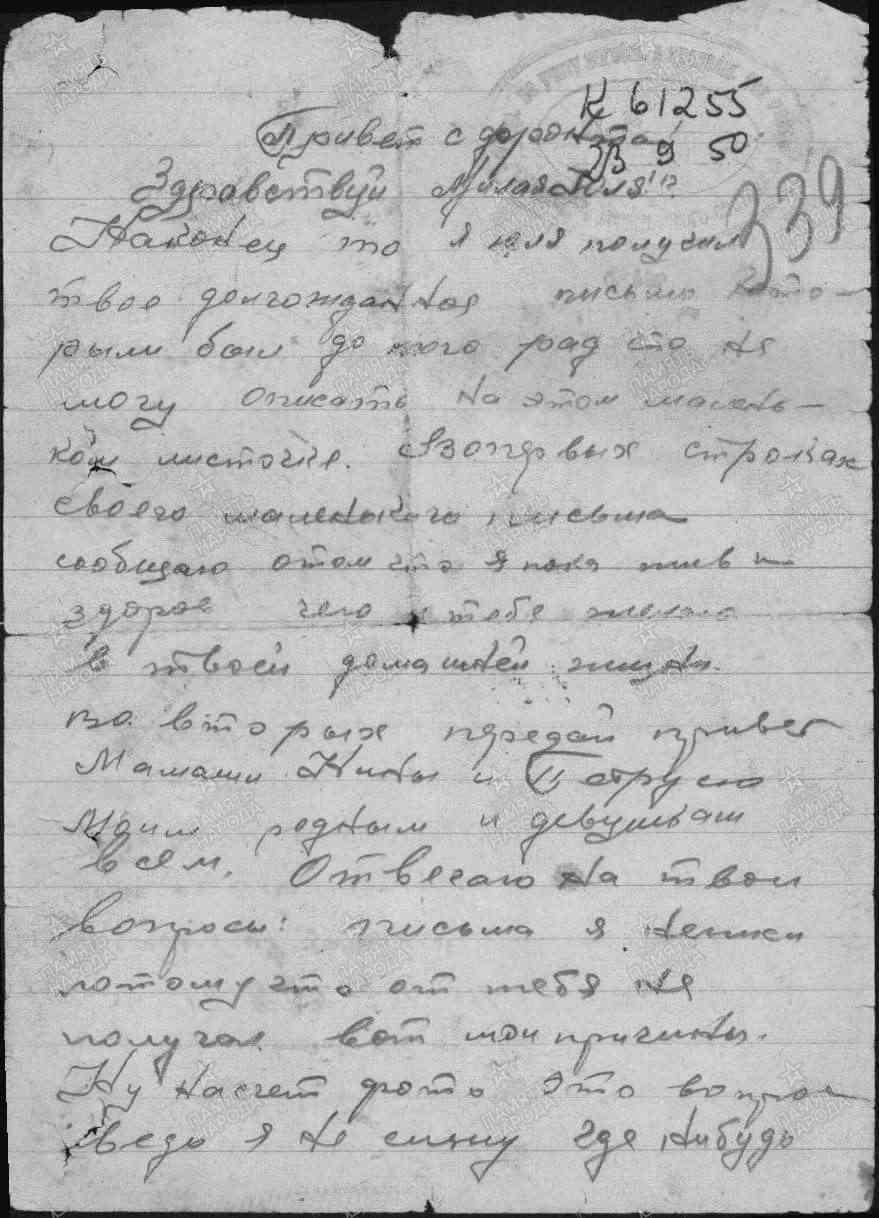 К 61255
Привет с фронта!
ЗВ 9 50
Здравствуй Милая Юля!!?
339
Наконец то я Юля получил
твое долгожданное письмо кото-
рыми был до того рад сто не
могу описать на этом малень-
ком листочке. Вопервых строках
своего маленького письма
сообщаю отом что я пока жив и
здоров чего и тебе желаю
в твоей домашней жизни.
во вторых передай привет
Мамаши Нины и Петрусю
Моим родным и девушкам
всем. Отвесаю на твои
вопросы: письма я
потому что от тебя не
получал вот мои причины.
Ну насчет фото это вопрос
ведь я не сижу где нибудь